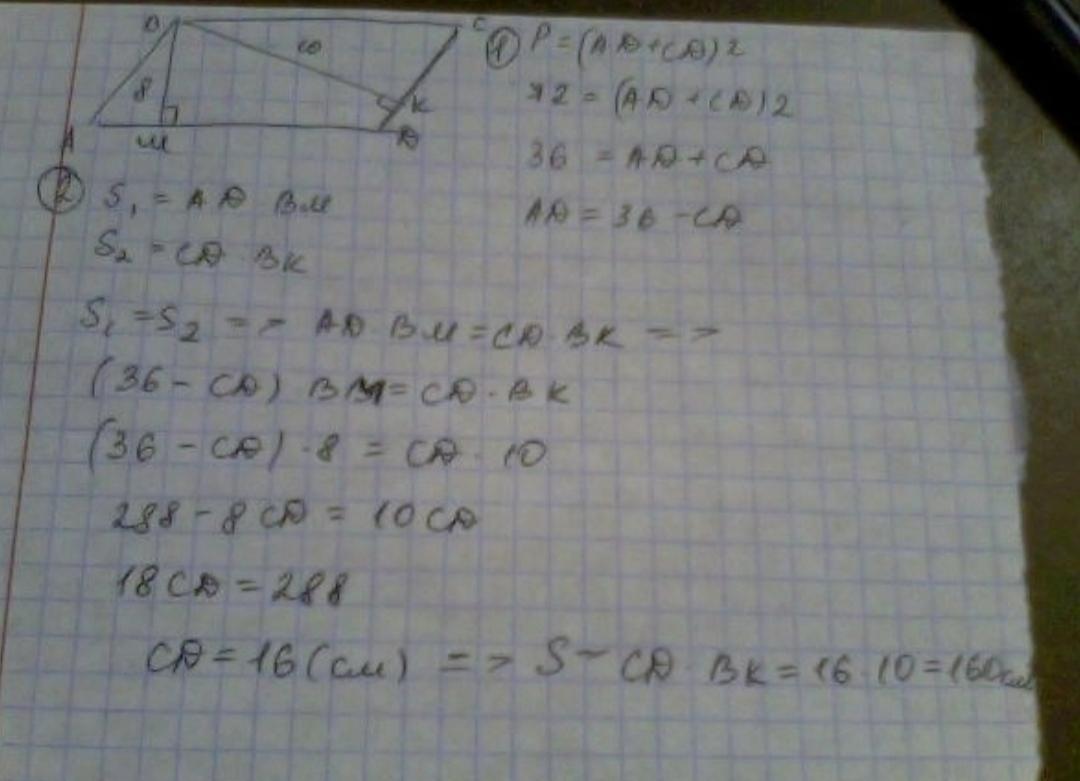 B C
10
8
A M D K
① P = (AD + CD) 2
72 = (AD + CD) 2
36 = AD + CD
AD = 36 - CD
② S₁ = AD BM
S₂ = CD BK
S₁ = S₂ => AD BM = CD · BK =>
(36 - CD) BM = CD · BK
(36 - CD) · 8 = CD · 10
288 - 8 CD = 10 CD
18 CD = 288
CD = 16 (см) => S = CD · BK = 16 · 10 = 160 см